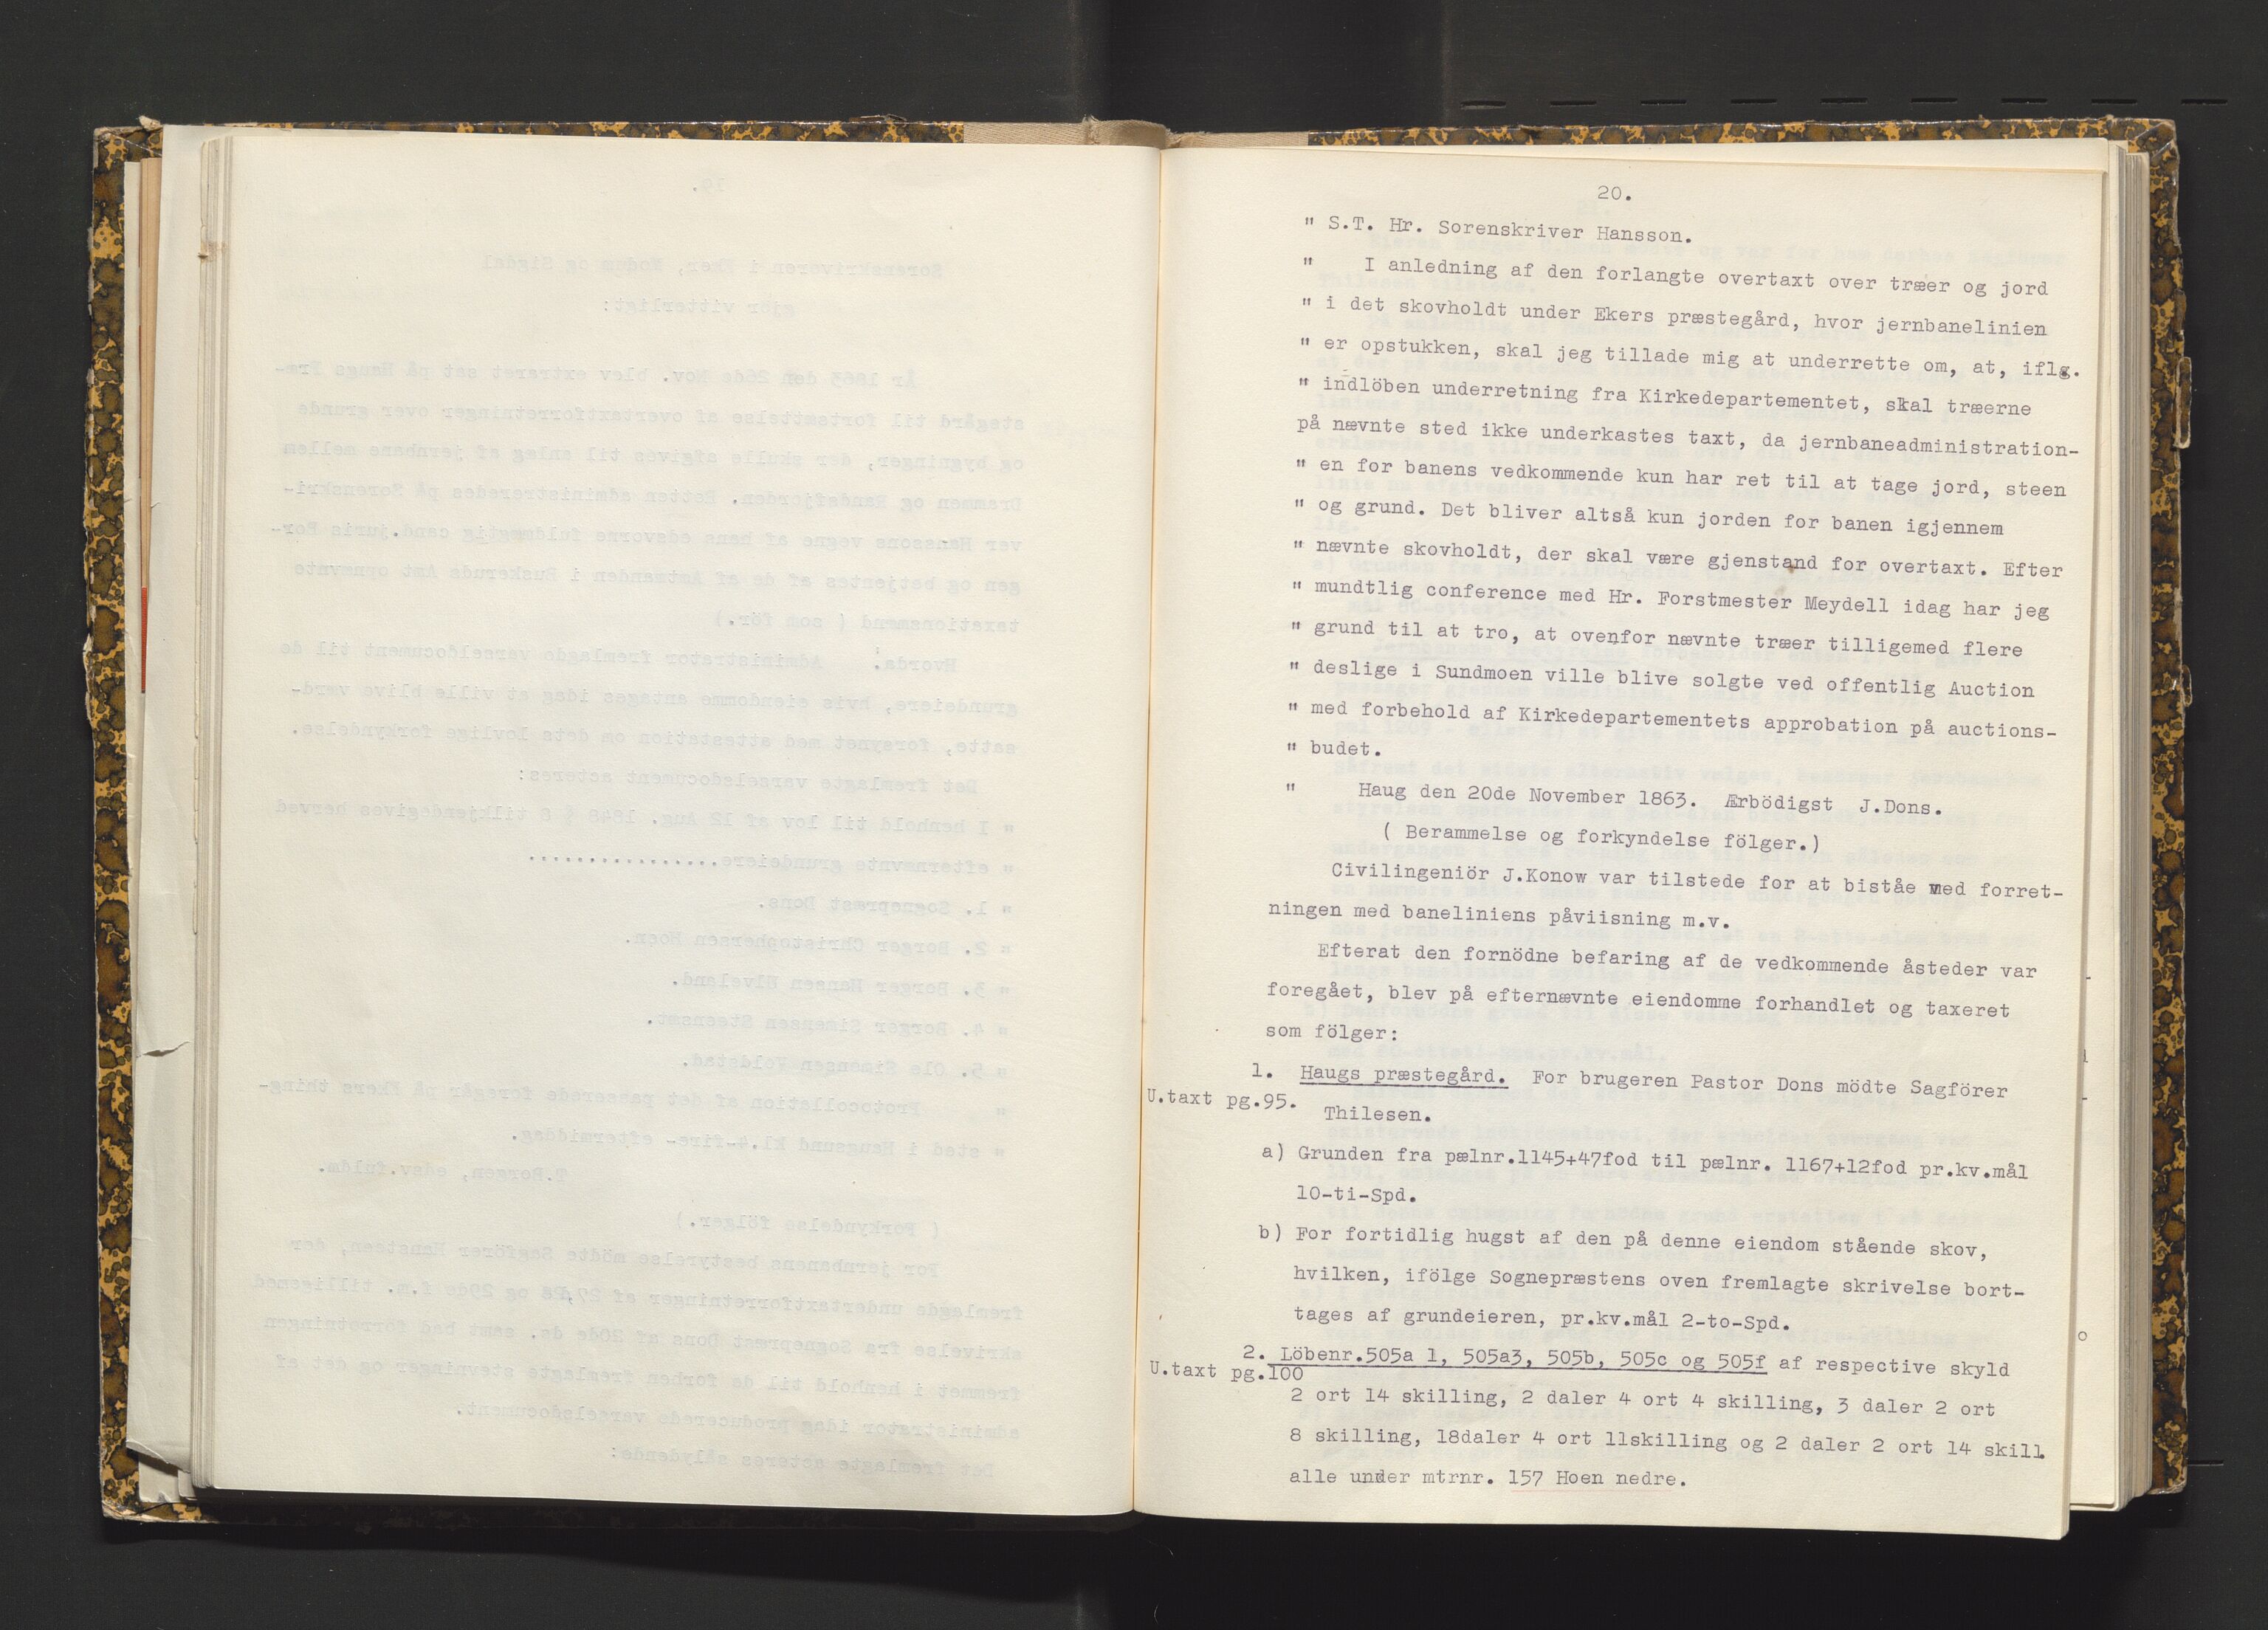 20.
" S.T. Hr. Sorenskriver Hansson.
" I anledning af den forlangte overtaxt over træer og jord
" i det skovholdt under Ekers præstegård, hvor jernbanelinien
" er opstukken, skal jeg tillade mig at underrette om, at, iflg.
" indlöben underretning fra Kirkedepartementet, skal træerne
på nævnte sted ikke underkastes taxt, da jernbaneadministration-
" en for banens vedkommende kun har ret til at tage jord, steen
" og grund. Det bliver altså kun jorden for banen igjennem
" nævnte skovholdt, der skal være gjenstand for overtaxt. Efter
" mundtlig conference med Hr. Forstmester Meydell idag har jeg
" grund til at tro, at ovenfor nævnte træer tilligemed flere
" deslige i Sundmoen ville blive solgte ved offentlig Auction
" med forbehold af Kirkedepartementets approbation på auctions-
" budet.
" Haug den 20de November 1863. Ærbödigst J.Dons.
( Berammelse og forkyndelse fölger.)
Civilingeniör J.Konow var tilstede for at biståe med forret-
ningen med baneliniens påviisning m.v.
Efterat den fornödne befaring af de vedkommende åsteder var
foregået, blev på efternævnte eiendomme forhandlet og taxeret
som fölger:
1. Haugs præstegård. For brugeren Pastor Dons mödte Sagförer
U.taxt pg.95. Thilesen.
a) Grunden fra pælnr.1145+47fod til pælnr. 1167+12fod pr.kv.mål
10-ti-Spd.
b) For fortidlig hugst af den på denne eiendom stående skov,
hvilken, ifölge Sognepræstens oven fremlagte skrivelse bort-
tages af grundeieren, pr.kv.mål 2-to-Spd.
2. Löbenr.505a 1, 505a3, 505b, 505c og 505f af respective skyld
U.taxt pg.100
2 ort 14 skilling, 2 daler 4 ort 4 skilling, 3 daler 2 ort
8 skilling, 18daler 4 ort 11skilling og 2 daler 2 ort 14 skill.
alle under mtrnr. 157 Hoen nedre.